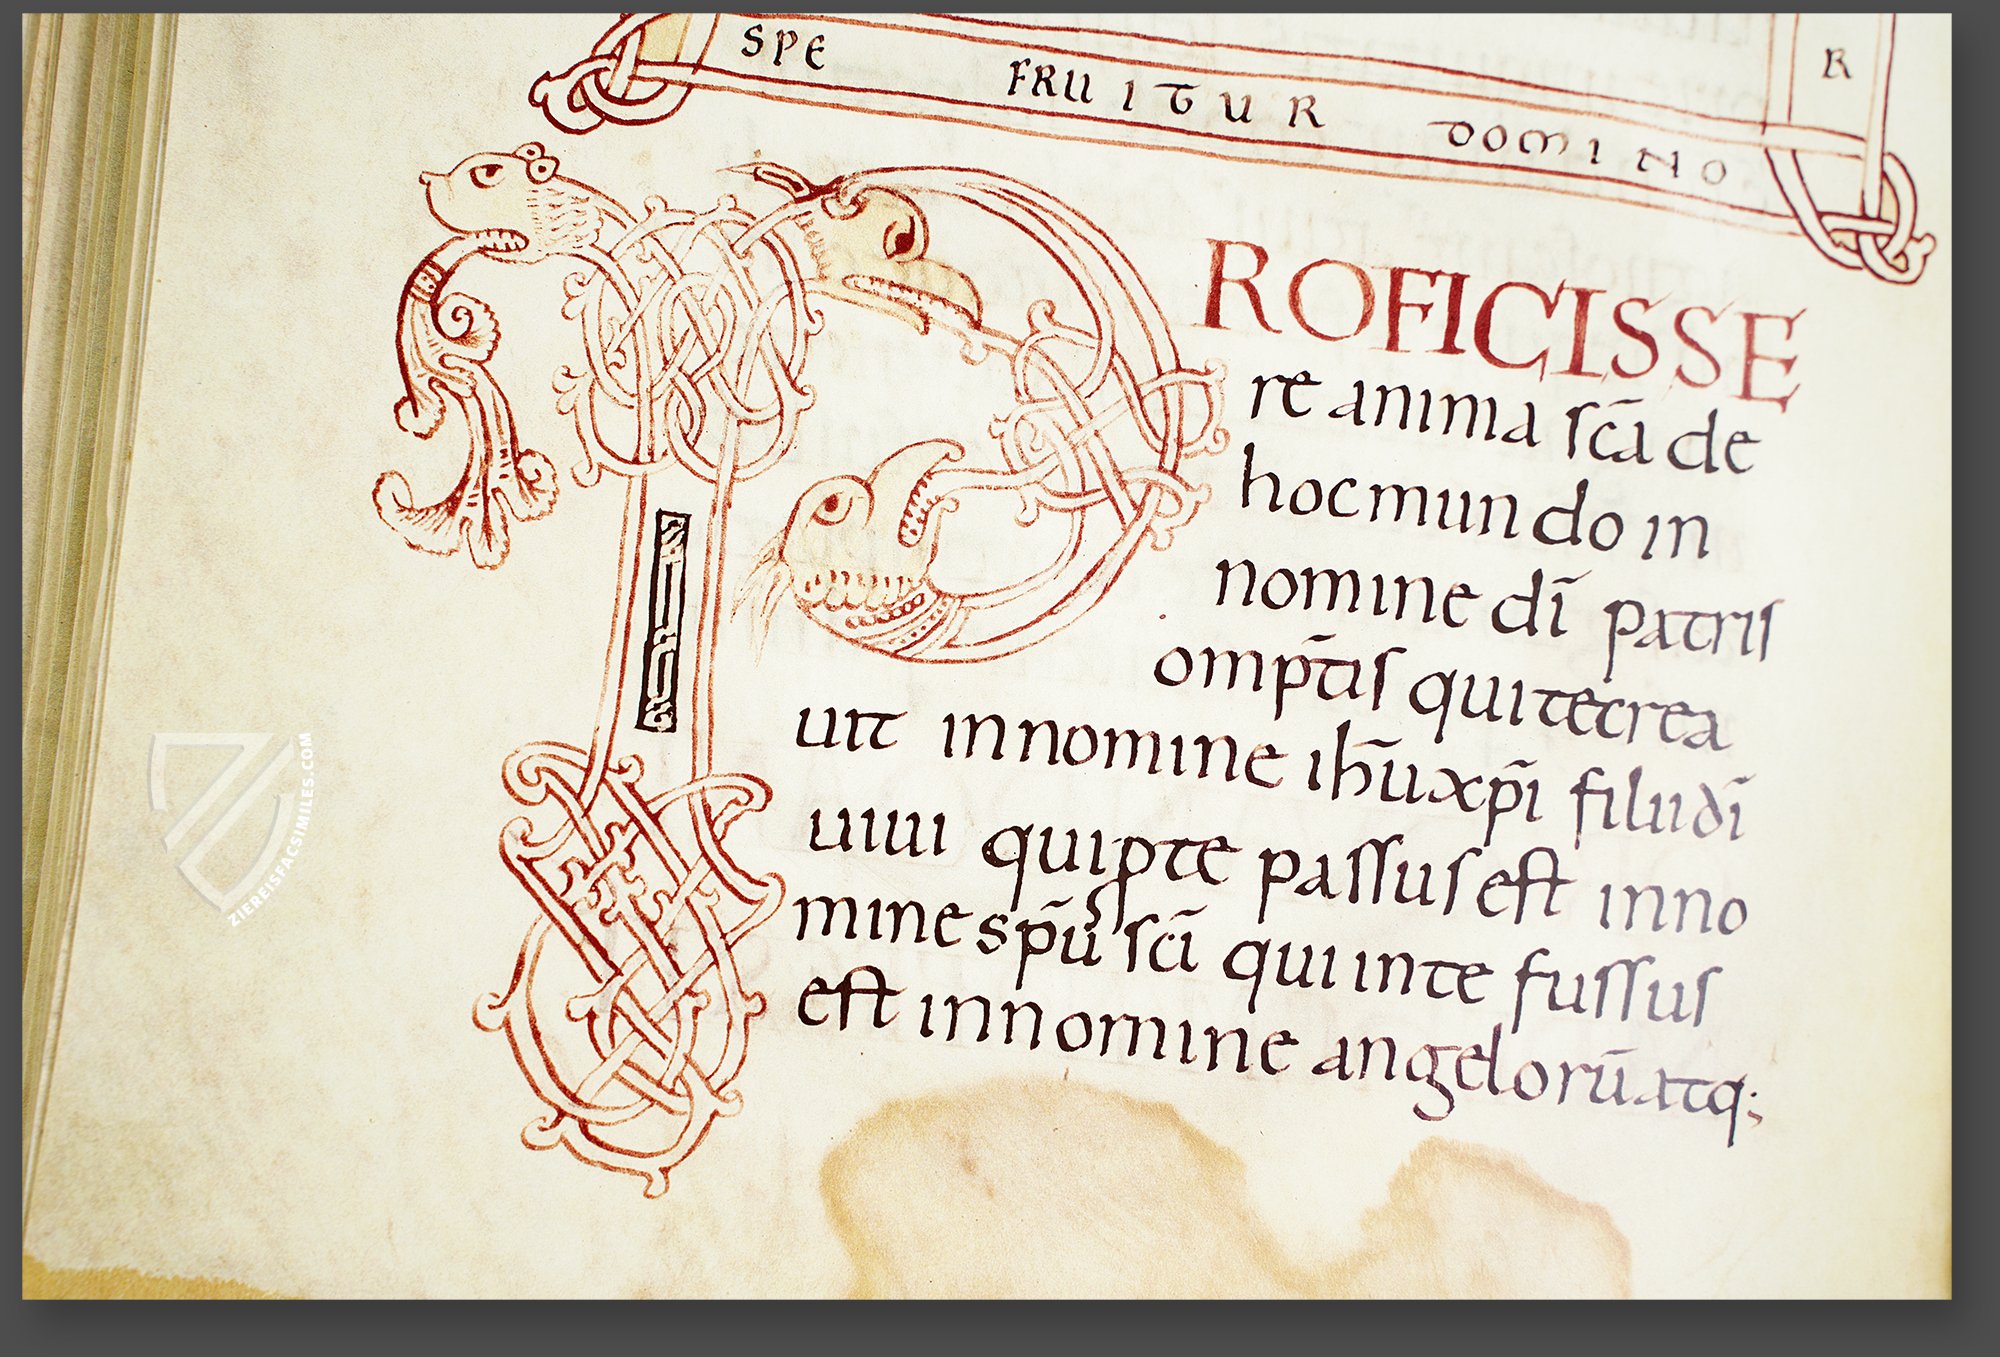 SPE FRUITUR DOMINO
R
PROFICISSE
re anima sc̄a de
hoc mundo in
nomine dī patris
omp̄tis qui te crea
uit in nomine ih̄u xp̄i filii dī
uiui qui p te passus est in no
mine sp̄u sc̄i qui in te fussus
est in nomine angelorū atq;
ZIEREISFACSIMILES.COM